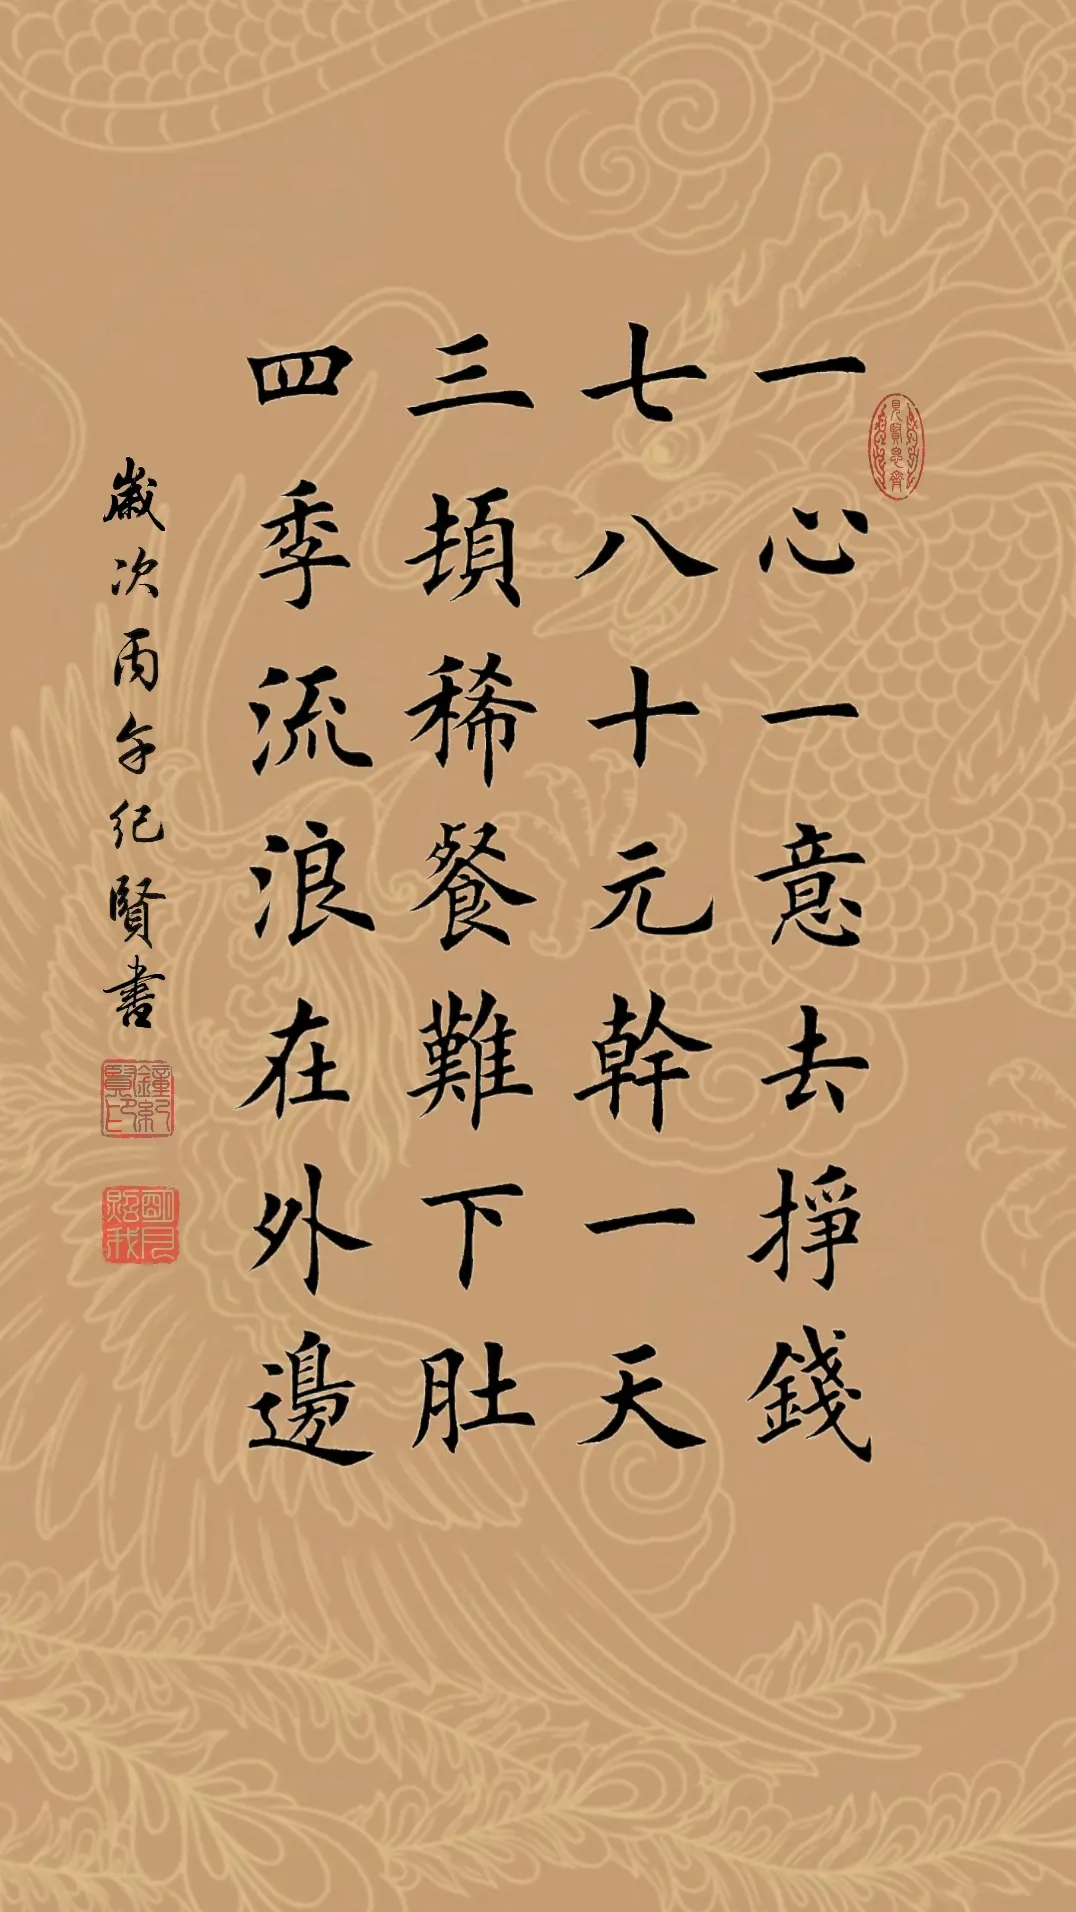 一心一意去掙錢
七八十元幹一天
三頓稀餐難下肚
四季流浪在外邊
歲次丙午紀賢書
見賢思齊
鐘紀賢印